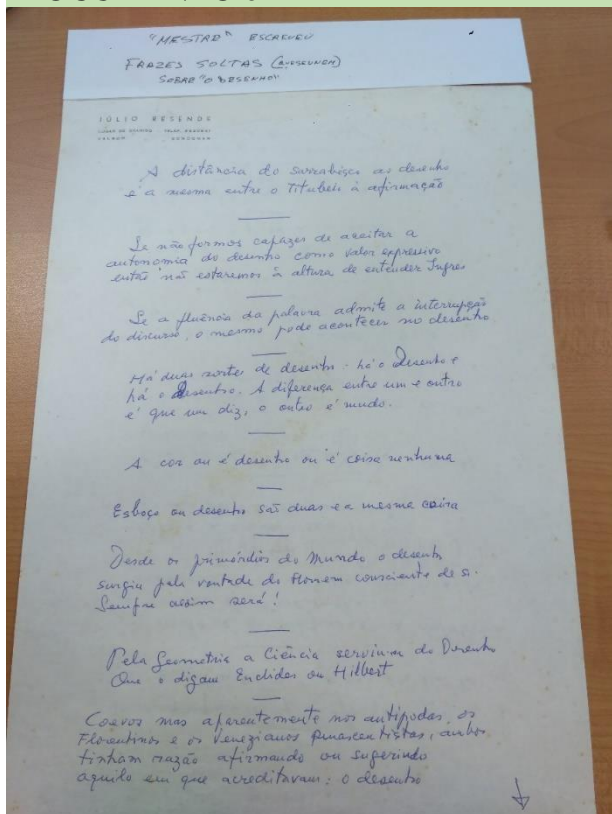 "MESTRE" ESCREVEU
FRAZES SOLTAS
SOBRE "O DESENHO"
JÚLIO RESENDE
VALBOM GONDOMAR
A distância do sarrabisco ao desenho
é a mesma entre o Titubeio à afirmação
Se não formos capazes de aceitar a
autonomia do desenho como valor expressivo
então não estaremos à altura de entender Ingres
Se a fluência da palavra admite a interrupção
do discurso, o mesmo pode acontecer no desenho
Há duas sortes de desenho: há o Desenho e
há o desenho. A diferença entre um e outro
é que um diz, o outro é mudo.
A cor ou é desenho ou é coisa nenhuma
Esboço ou desenho são duas e a mesma coisa
Desde os primórdios do Mundo o desenho
surgiu pela vontade do Homem consciente de si.
Sempre assim será!
Pela Geometria a Ciência serviu-se do Desenho
Que o digam Euclides ou Hilbert
Coevos mas aparentemente nos antípodas, os
Florentinos e os Venezianos Renascentistas, ambos
tinham razão afirmando ou sugerindo
aquilo em que acreditavam: o desenho